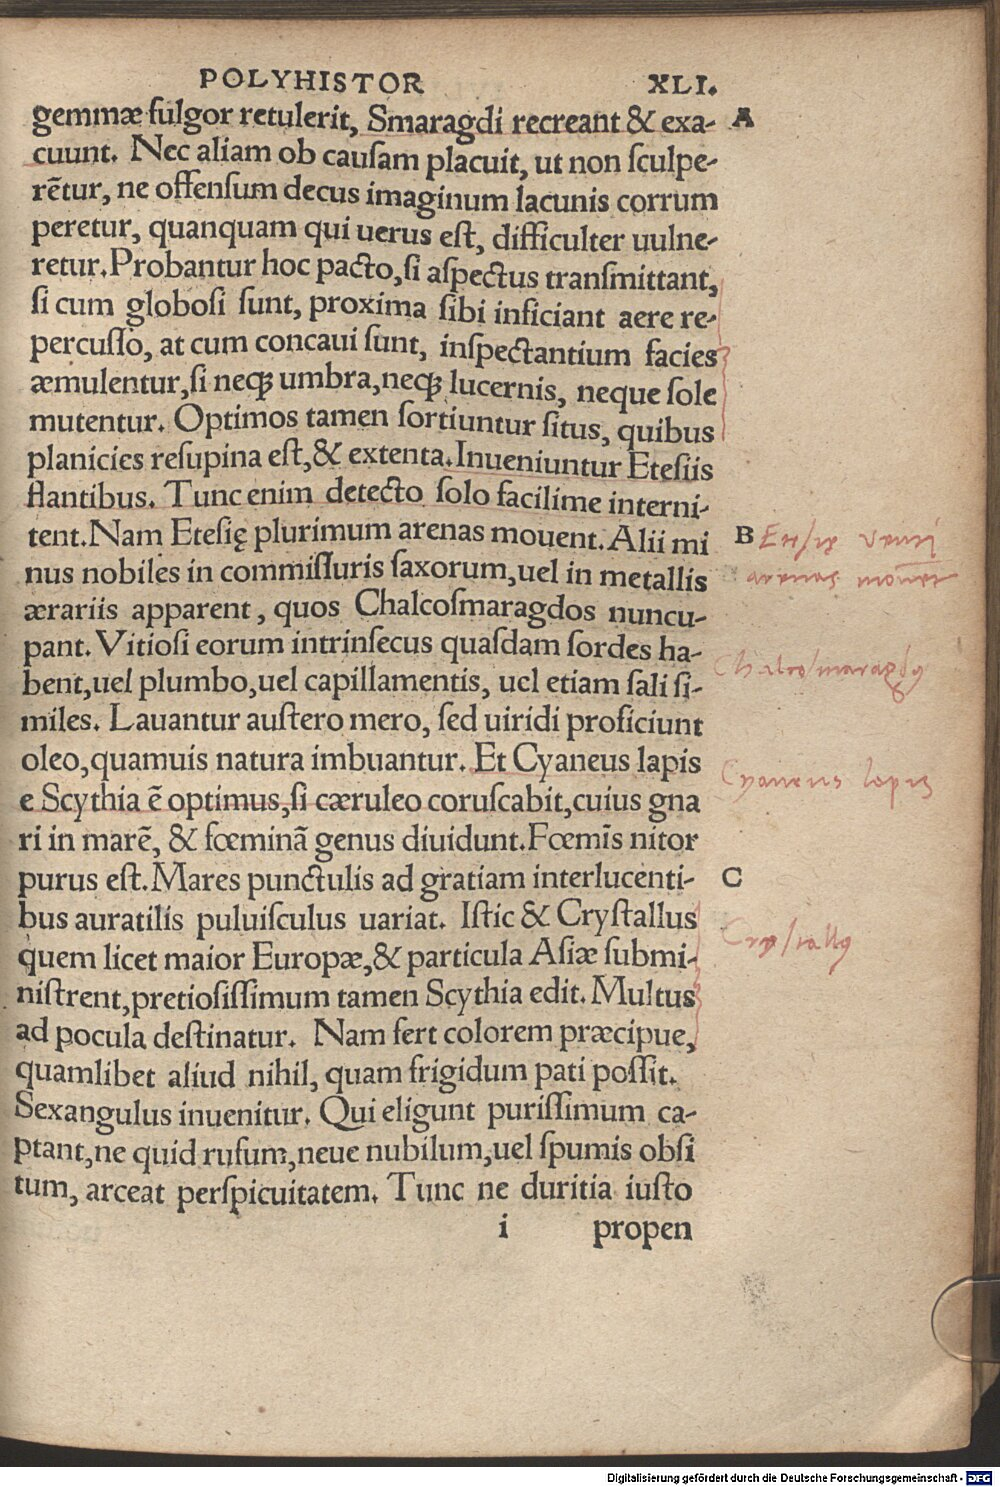 POLYHISTOR XLI.
gemmæ fulgor retulerit, Smaragdi recreant & exa- A
cuunt. Nec aliam ob cauſam placuit, ut non ſculpe-
rētur, ne offenſum decus imaginum lacunis corrum
peretur, quanquam qui uerus eſt, difficulter uulne-
retur. Probantur hoc pacto, ſi aſpectus tranſmittant,
ſi cum globoſi ſunt, proxima ſibi inficiant aere re-
percuſſo, at cum concaui ſunt, inſpectantium facies
æmulentur, ſi neqꝫ umbra, neqꝫ lucernis, neque ſole
mutentur. Optimos tamen ſortiuntur ſitus, quibus
planicies reſupina eſt, & extenta. Inueniuntur Eteſiis
flantibus. Tunc enim detecto ſolo facilime interni-
tent. Nam Eteſię plurimum arenas mouent. Alii mi B Etesię venti
nus nobiles in commiſſuris ſaxorum, uel in metallis arenas mouēt
ærariis apparent, quos Chalcoſmaragdos nuncu-
pant. Vitioſi eorum intrinſecus quaſdam ſordes ha- Chalcoſmaragdꝰ
bent, uel plumbo, uel capillamentis, uel etiam ſali ſi-
miles. Lauantur auſtero mero, ſed uiridi proficiunt
oleo, quamuis natura imbuantur. Et Cyaneus lapis Cyaneus lapis
e Scythia ē optimus, ſi cæruleo coruſcabit, cuius gna
ri in marē, & fœminā genus diuidunt. Fœmīs nitor
purus eſt. Mares punctulis ad gratiam interlucenti- C
bus auratilis puluiſculus uariat. Iſtic & Cryſtallus Cryſtallꝰ
quem licet maior Europæ, & particula Aſiæ ſubmi-
niſtrent, pretioſiſſimum tamen Scythia edit. Multus
ad pocula deſtinatur. Nam fert colorem præcipue,
quamlibet aliud nihil, quam frigidum pati poſſit.
Sexangulus inuenitur. Qui eligunt puriſſimum ca-
ptant, ne quid rufum, neue nubilum, uel ſpumis obſi
tum, arceat perſpicuitatem. Tunc ne duritia iuſto
i propen
Digitalisierung gefördert durch die Deutsche Forschungsgemeinschaft - DFG